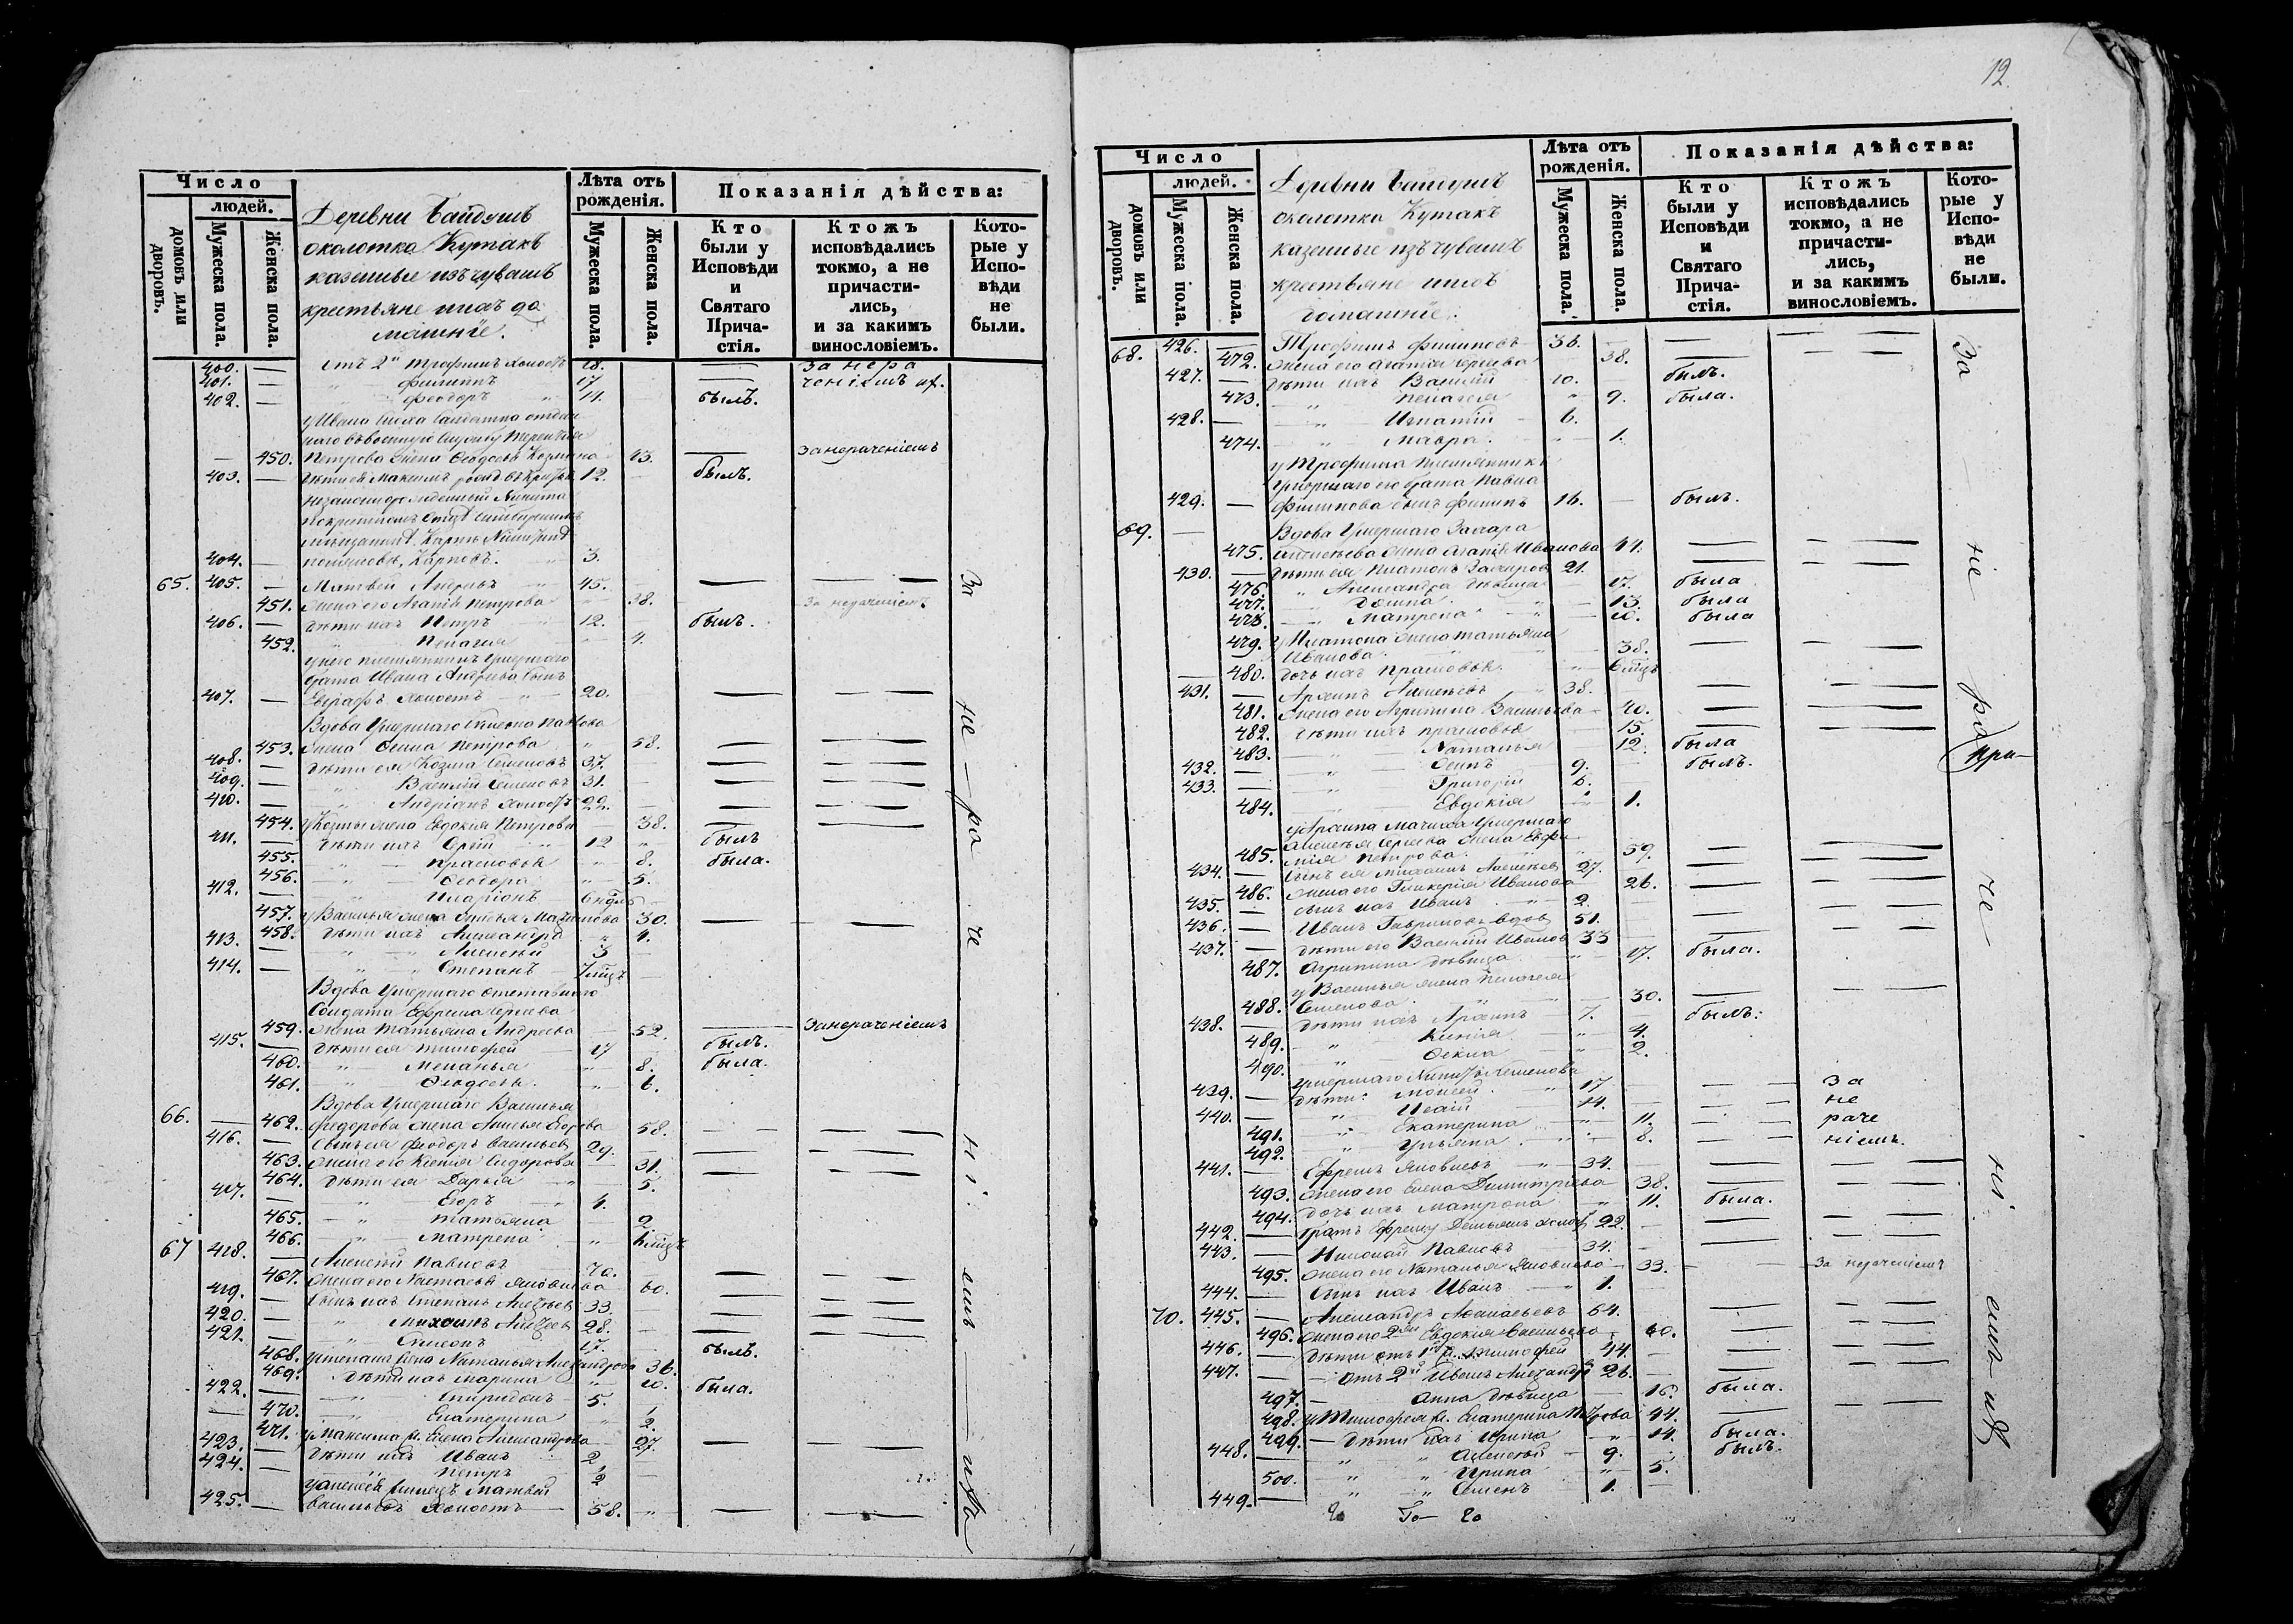 Число
людей.
домовъ или дворовъ.
Мужеска пола.
Женска пола.
Деревни Байдушъ
околотка Кутакъ
казенные изъ чувашъ
крестьяне и ихъ до
машніе.
Лѣта отъ рожденія.
Мужеска пола.
Женска пола.
Показанія дѣйства:
Кто были у Исповѣди и Святаго Прича- стія.
Ктожъ исповѣдались токмо, а не причасти- лись, и за какимъ винословіемъ.
Кото- рые у Испо- вѣди не были.
400. — отъ 2й Трофимъ холостъ 18. — За нера
401. — Филиппъ 17 — ченіемъ
402. — Феодоръ 11. былъ.
У Ивана
— 450. Петрова жена Феодосья 43. — За нераченіемъ
403. — Дѣти ей Максимъ 12. — былъ.
404. — Карповъ. 3.
65. 405. — Матвей Андреевъ 45. — — —
451. Жена его Агапія Петрова 38. За нераченіемъ
406. — Дѣти ихъ Петръ 12. — былъ.
452. Пелагея 4.
у него племянникъ умершаго
брата Ивана Андреева сынъ
407. — Евграфъ холостъ 20. — — —
Вдова умершаго Семена Павлова
453. жена Петрова 58. — — —
408. — Дѣти ея Козма Семеновъ 37. — — —
409. — Василій Семеновъ 31. — — —
410. — Андріанъ холостъ 22. — — —
454. у Козмы жена Евдокія Петрова — 38. — — —
411. — Дѣти ихъ 12 былъ
455. Прасковья 8. была.
456. Феодора 5.
412. — Иларіонъ 6 нѣдль
457. у Василья жена 30. — — —
458. Дѣти ихъ Александра 4.
413. — Алексѣй 3 —
414. — Степанъ 7 мцъ —
Вдова умершаго отставнаго
Солдата Ефрема Сергѣева
459. жена Татьяна Андреева — 52. — За нераченіемъ
415. — Дѣти ея Тимофей 17 былъ.
460. Меланья 8. была.
461. Феодосья. 6.
Вдова умершаго Василья
66. — 462. Федорова жена 58. — — —
416. — Сынъ ея Феодоръ Васильевъ 29. — — —
463. жена его Ксенія Сидорова 31. — — —
464. Дѣти ея Дарья 5.
417. — Егоръ 4.
465. Татьяна 2.
466. Матрена 6 мцъ
67 418. — Алексѣй Павловъ 70. — — —
467. Жена его Настасья Яковлева 60. — — —
419. — Сынъ ихъ Степанъ 33. — — —
420. — Михаилъ 28. — — —
421. — Симеонъ 17. былъ.
468. у Степана жена Наталья Александрова 36.
469. Дѣти ихъ Марина 10. была.
422. — Спиридонъ 5.
470. Екатерина 2.
471. у Максима ж. Елена Александрова 27. — — —
423. — Дѣти ихъ Иванъ 2
424. — Петръ 2
у Алексѣя Матвей
425. — Васильевъ холостъ — 58. — — —
За не—ра че ні. емъ—
12
Число
людей.
домовъ или дворовъ.
Мужеска пола.
Женска пола.
Деревни Байдушъ
околотка Кутакъ
казенные изъ чувашъ
крестьяне и ихъ
домашніе.
Лѣта отъ рожденія.
Мужеска пола.
Женска пола.
Показанія дѣйства:
Кто были у Исповѣди и Святаго Прича- стія.
Ктожъ исповѣдались токмо, а не причасти- лись, и за какимъ винословіемъ.
Кото- рые у Испо- вѣди не были.
68. 426. — Трофимъ Филиповъ 38. — — —
472. жена его Агафія Сергѣева 38. — — —
427. — Дѣти ихъ Василій 10. былъ.
473. Пелагея 9. была.
428. — Игнатій 6.
474. Мавра. 1.
у Трофима племянникъ
умершаго его брата Павла
429. — Филипова сынъ Филипъ 16. — былъ.
69. — Вдова умершаго Захара
475. Алексѣева жена Агапія Иванова 41. — — —
430. — Дѣти ея Платонъ Захаровъ 21. — — —
476. Александра дѣвица 17. была
477. Домна 13. была
478. Матрена 10. была
479. у Платона жена Татьяна
Иванова. 38. — — —
480. дочь ихъ Прасковья. 6 мцъ
431. — Архипъ Алексѣевъ 38. — — —
481. Жена его Агрипина Васильева 40. — — —
482. Дѣти ихъ Прасковья 15. — — —
483. Наталья 12. была
432. — Осипъ 9. былъ.
433. — Григорій 6.
484. Евдокія 1.
у Архипа Мачиха умершаго
Алексѣя Сергѣева жена Евфи
485. мія Петрова. 59. — — —
434. — Сынъ ея Михаилъ Алексѣевъ 27. — — —
486. Жена его Гликерія Иванова 26. — — —
435. — Сынъ ихъ Иванъ 2.
436. — Иванъ Гавриловъ вдовъ 51. — — —
437. — Дѣти его Василій Ивановъ 33 — — —
487. Агрипина дѣвица 17. была.
у Василья жена Пелагея
488. Семенова. 30. — — —
438. — Дѣти ихъ Архипъ 7. былъ:
489. Ксенія 4.
490. Фекла 2.
умершаго Никиты Семенова
439. — Дѣти: Моисей 17 — — — За
440. — Исай 14. — — — не
491. Екатерина 11. — — — раче
492. Ульяна 8. — — — ніемъ.
441. — Ефремъ Яковлевъ 34. — — —
493. Жена его Елена Димитріева 38. — — —
494. Дочь ихъ Матрона 11. была.
442. — Братъ Ефрему Демьянъ холостъ 22. — — —
443. — Николай Павловъ 34. — — —
495. Жена его Наталья Яковлева 33. — — За нераченіемъ
444. — Сынъ ихъ Иванъ 1.
70. 445. — Александръ Афанасьевъ 64. — — —
496. Жена его 2я Евдокія Васильева 60. — — —
446. — Дѣти отъ 1й Тимофей 44. — — —
447. — отъ 2й Иванъ Александръ 26. — — —
497. Анна дѣвица 16. была.
498. у Тимофея ж. Екатерина 44. — — —
499. Дѣти ихъ Ирина 14. была.
448. — Алексѣй 9. былъ.
500. Ирина 5.
449. — Семенъ 1.
За не ра че ні. емъ